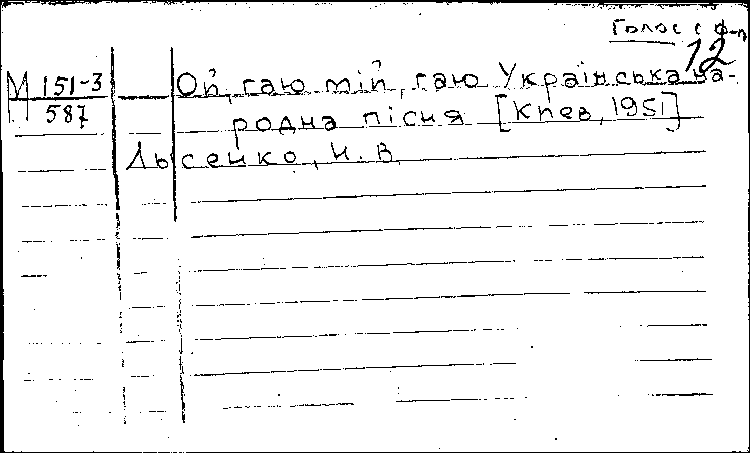 Голос с ф-п
12
М 151-3
587
Ой, гаю мій, гаю Українська на-
родна пісня [Киев, 1951]
Лысенко, Н. В.